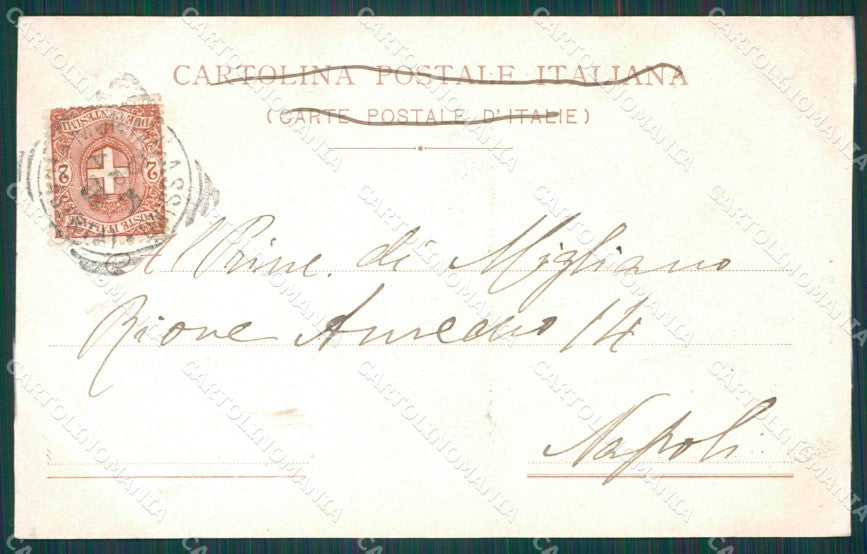 CARTOLINA POSTALE ITALIANA
(CARTE POSTALE D'ITALIE)
DUE CENTESIMI
2 2
POSTE ITALIANE
Al Princ. di Migliano
Rione Amedeo 14
Napoli
CARTOLINOMANIA